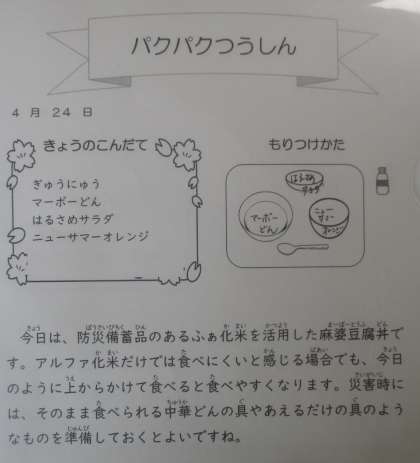 パクパクつうしん
4 月 24 日
きょうのこんだて
ぎゅうにゅう
マーボーどん
はるさめサラダ
ニューサマーオレンジ
もりつけかた
はるさめ
サラダ
マーボー
どん
ニュー
サマー
オレンジ
今日は、防災備蓄品のあるふぁ化米を活用した麻婆豆腐丼で
す。アルファ化米だけでは食べにくいと感じる場合でも、今日
のように上からかけて食べると食べやすくなります。災害時に
は、そのまま食べられる中華どんの具やあえるだけの具のよう
なものを準備しておくとよいですね。